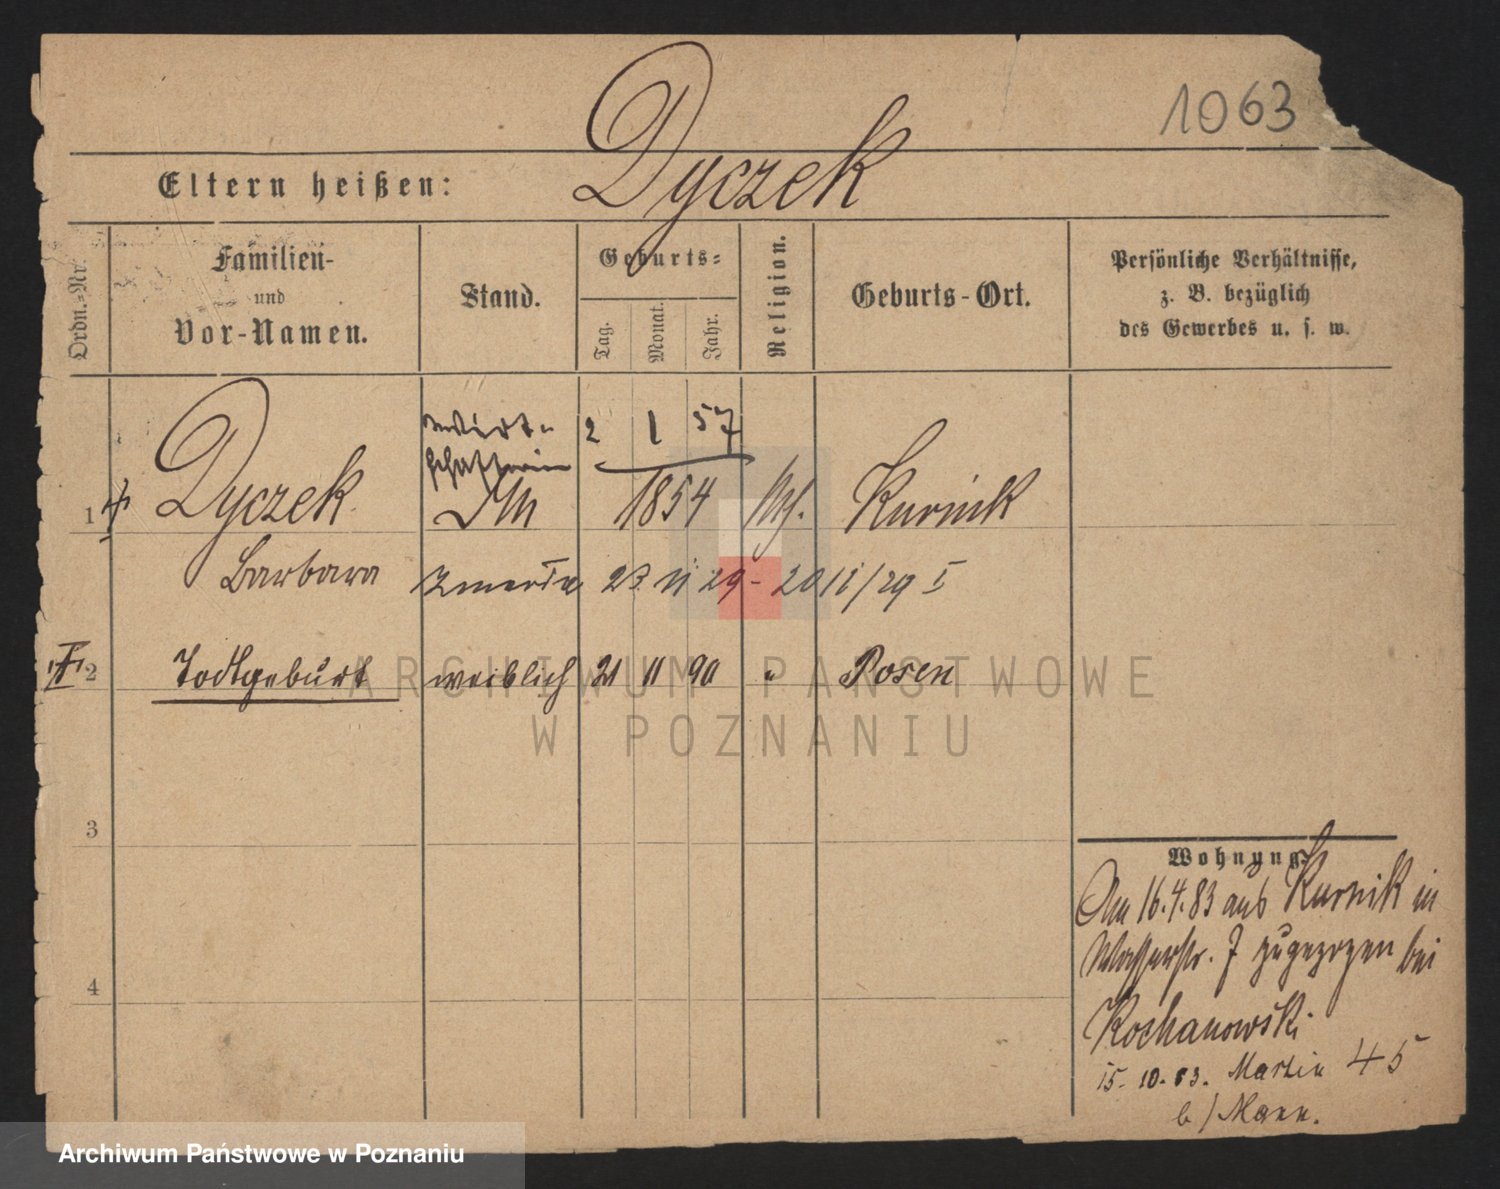 1063
Dyczek
Eltern heißen:
Ordn.=Nr.
Familien-
und
Vor-Namen.
Stand.
Geburts=
Tag.
Monat.
Jahr.
Religion.
Geburts-Ort.
Persönliche Verhältnisse,
z. B. bezüglich
des Gewerbes u. s. w.
Wirt=
schafterin
2 1 57
1 Dyczek 1854 Kurnik
Barbara zmarła 23 II 29 - 20
2 Todtgeburt weiblich 21 11 90 " Posen
ARCHIWUM PAŃSTWOWE
W POZNANIU
3
4
Wohnung.
Am 16.4.83 aus Kurnik in
Wasserstr. 7 zugezogen bei
Kochanowski
15. 10. 83. Martin 45
b/ Mann.
Archiwum Państwowe w Poznaniu